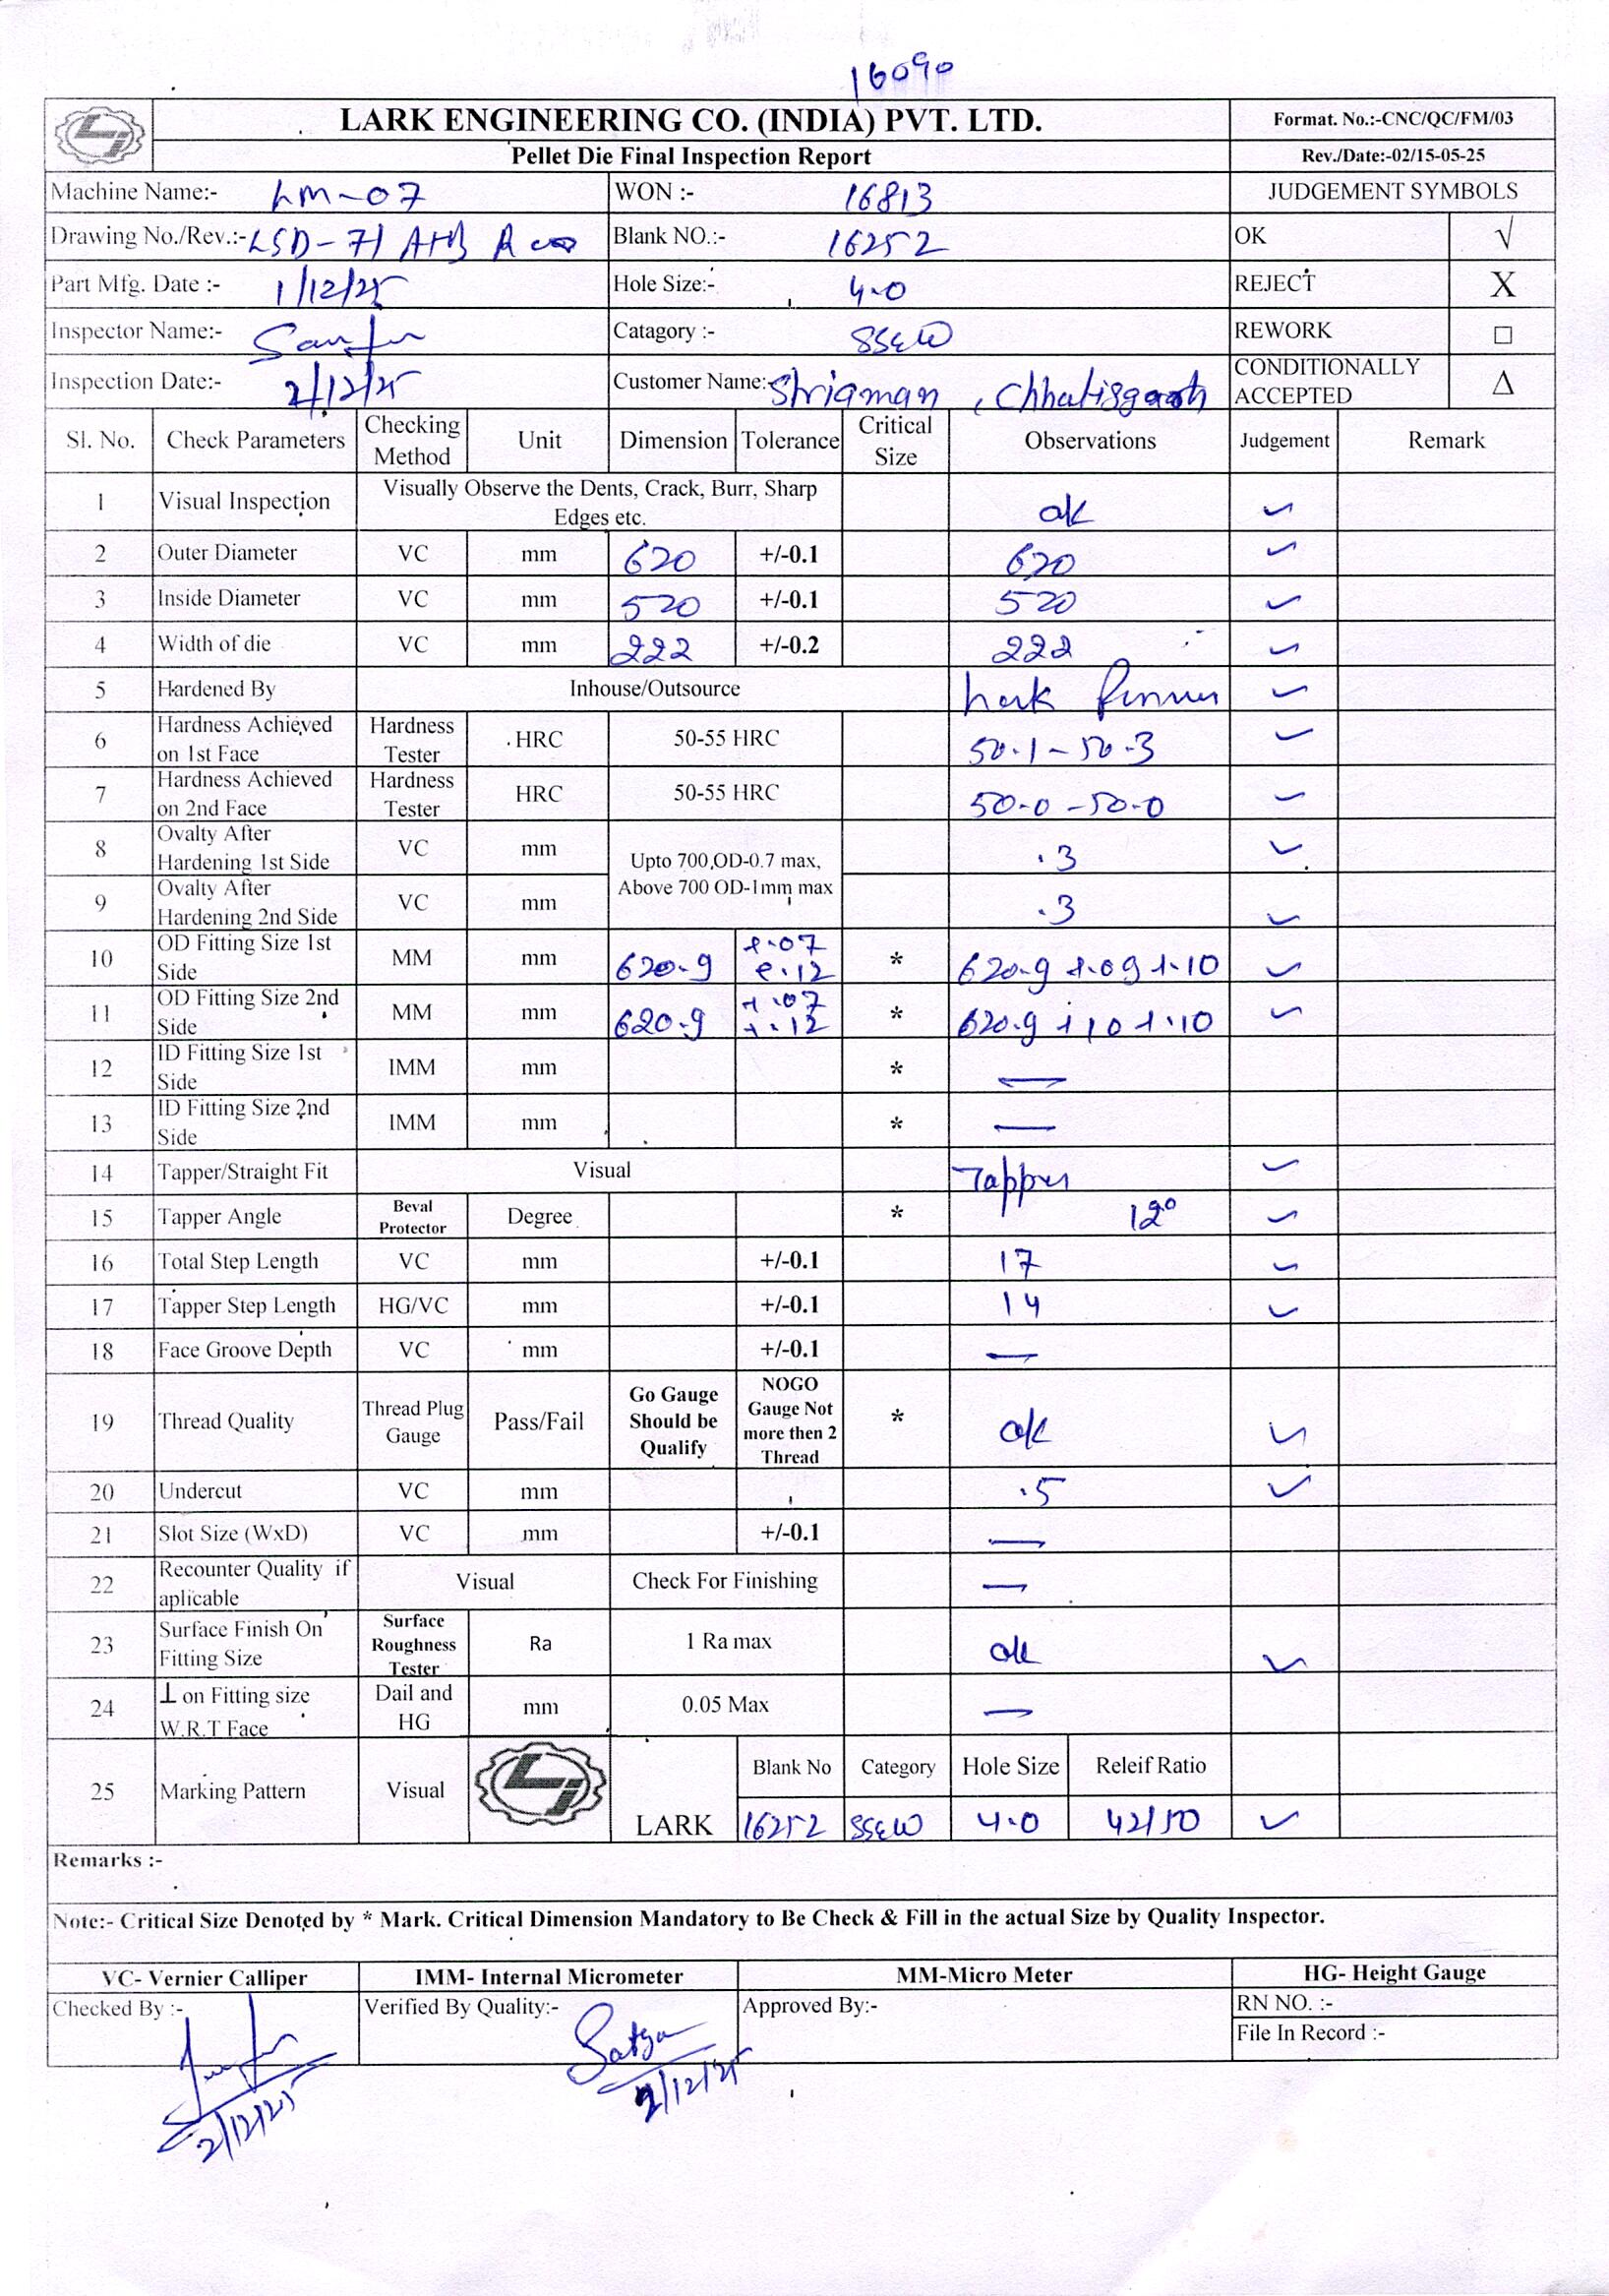 16090
LARK ENGINEERING CO. (INDIA) PVT. LTD. Format. No.:-CNC/QC/FM/03
Pellet Die Final Inspection Report Rev./Date:-02/15-05-25
Machine Name:- LM-07 WON :- 16813 JUDGEMENT SYMBOLS
Drawing No./Rev.:- LSD-71 AHB R00 Blank NO.:- 16252 OK √
Part Mfg. Date :- 1/12/25 Hole Size:- 4.0 REJECT X
Inspector Name:- Catagory :- SS&W REWORK □
Inspection Date:- 2/12/25 Customer Name:- Shriaman, Chhatisgarh CONDITIONALLY ACCEPTED Δ
Sl. No. Check Parameters Checking Method Unit Dimension Tolerance Critical Size Observations Judgement Remark
1 Visual Inspection Visually Observe the Dents, Crack, Burr, Sharp Edges etc. ok ✓
2 Outer Diameter VC mm 620 +/-0.1 620 ✓
3 Inside Diameter VC mm 520 +/-0.1 520 ✓
4 Width of die VC mm 222 +/-0.2 222 ✓
5 Hardened By Inhouse/Outsource Lark ✓
6 Hardness Achieved on 1st Face Hardness Tester HRC 50-55 HRC 50.1-50.3 ✓
7 Hardness Achieved on 2nd Face Hardness Tester HRC 50-55 HRC 50.0-50.0 ✓
8 Ovalty After Hardening 1st Side VC mm Upto 700,OD-0.7 max, Above 700 OD-1mm max .3 ✓
9 Ovalty After Hardening 2nd Side VC mm .3 ✓
10 OD Fitting Size 1st Side MM mm 620.9 +.07 +.12 * 620.9 +.09 +.10 ✓
11 OD Fitting Size 2nd Side MM mm 620.9 +.07 +.12 * 620.9 +.10 +.10 ✓
12 ID Fitting Size 1st Side IMM mm * —
13 ID Fitting Size 2nd Side IMM mm * —
14 Tapper/Straight Fit Visual Tapper ✓
15 Tapper Angle Beval Protector Degree * 12° ✓
16 Total Step Length VC mm +/-0.1 17 ✓
17 Tapper Step Length HG/VC mm +/-0.1 14 ✓
18 Face Groove Depth VC mm +/-0.1 —
19 Thread Quality Thread Plug Gauge Pass/Fail Go Gauge Should be Qualify NOGO Gauge Not more then 2 Thread * ok ✓
20 Undercut VC mm .5 ✓
21 Slot Size (WxD) VC mm +/-0.1 —
22 Recounter Quality if aplicable Visual Check For Finishing —
23 Surface Finish On Fitting Size Surface Roughness Tester Ra 1 Ra max ok ✓
24 ⊥ on Fitting size W.R.T Face Dail and HG mm 0.05 Max —
25 Marking Pattern Visual LARK Blank No Category Hole Size Releif Ratio
16252 SS&W 4.0 42/50 ✓
Remarks :-
Note:- Critical Size Denoted by * Mark. Critical Dimension Mandatory to Be Check & Fill in the actual Size by Quality Inspector.
VC- Vernier Calliper IMM- Internal Micrometer MM-Micro Meter HG- Height Gauge
Checked By :- Verified By Quality:- Satya Approved By:- RN NO. :-
File In Record :-
2/12/25 2/12/25